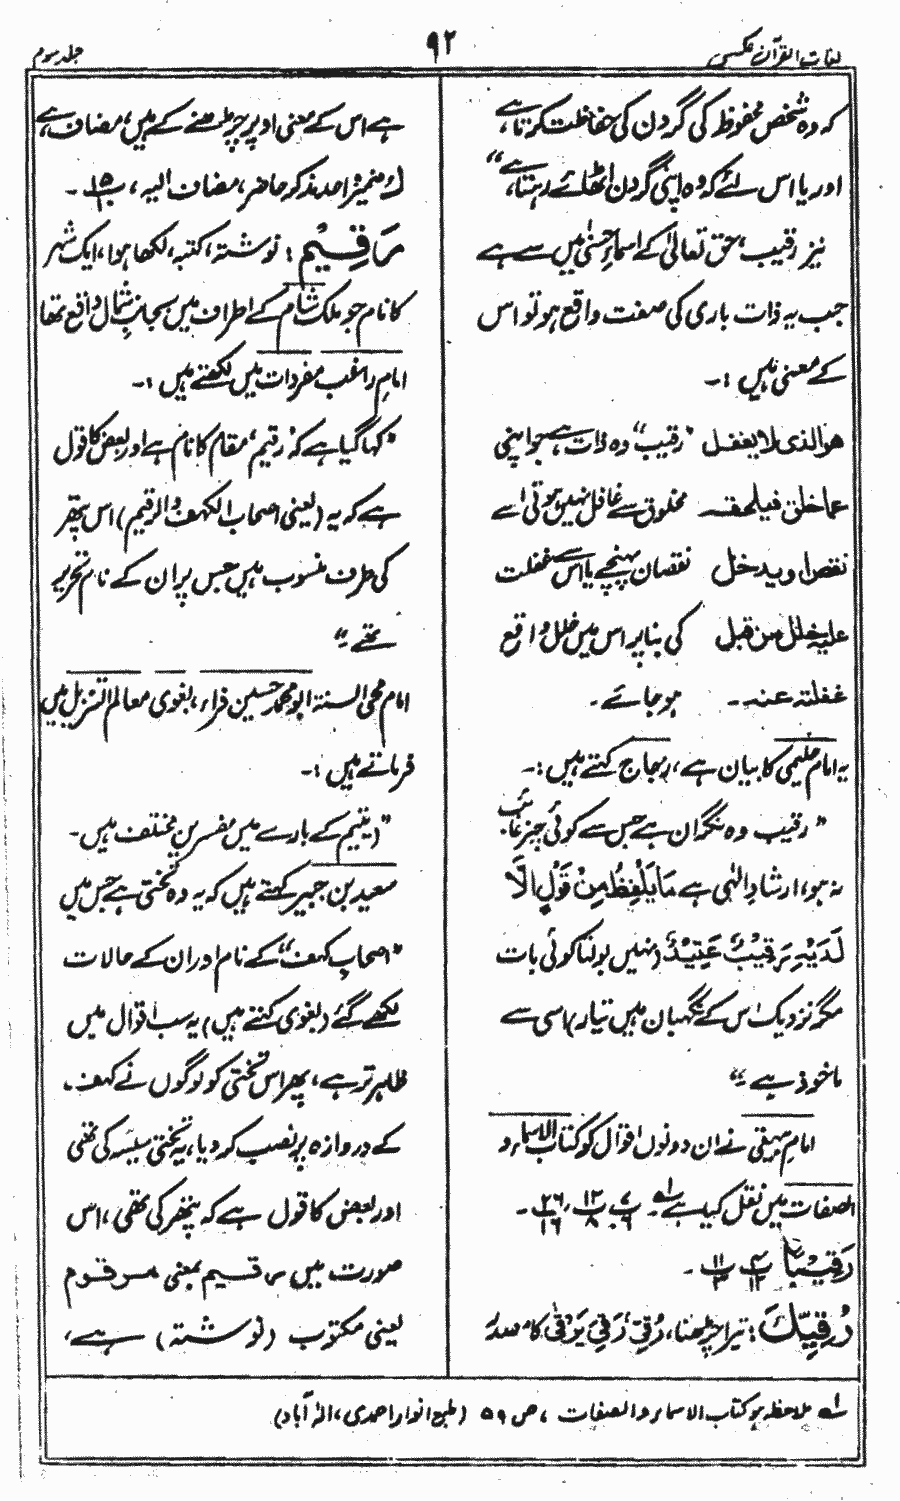 لغات القرآن عکسی
۹۲
جلد سوم
کہ وہ شخص محفوظ کی گردن کی حفاظت کرتا ہے،
اور یا اس لئے کہ وہ اپنی گردن اٹھائے رہتا ہے،"
نیز رقیب، حق تعالیٰ کے اسماءِ حسنیٰ میں سے ہے
جب یہ ذات باری کی صفت واقع ہو تو اس
کے معنی ہیں :۔
هوالذی لا یغفل "رقیب" وہ ذات ہے جو اپنی
عما خلق فیلحقہ مخلوق سے غافل نہیں ہوتی اسے
نقص او یدخل نقصان پہنچے یا اس سے غفلت
علیہ خلل من قبل کی بنا پر اس میں خلل واقع
غفلتہ عنہ ۔ ہو جائے ۔
یہ امام حلیمی کا بیان ہے، زجاج کہتے ہیں :۔
"رقیب وہ نگران ہے جس سے کوئی چیز غائب
نہ ہو، ارشادِ الٰہی ہے مَا يَلْفِظُ مِنْ قَوْلٍ اِلَّا
لَدَيْهِ رَقِيْبٌ عَتِيْدٌ (نہیں بولتا کوئی بات
مگر نزدیک اس کے نگہبان ہیں تیار) اسی سے
ماخوذ ہے"
امام بیہقی نے ان دونوں اقوال کو کتاب الاسماء و
الصفات میں نقل کیا ہے لہ ۔
رَقِيْبًا
رُقِيِّكَ : تیرا چڑھنا، رُقِيّ، رَقِيَ يَرْقٰى کا مصدر
ہے اس کے معنی اوپر چڑھنے کے ہیں، مضاف ہے،
كَ ضمیر واحد مذکر حاضر، مضاف الیہ، پ ۱۵ ۔
رَقِيْم : نوشتہ، کتبہ، لکھا ہوا، ایک شہر
کا نام جو ملک شام کے اطراف میں بجانبِ شمال واقع تھا
امام راغب مفردات میں لکھتے ہیں :۔
"کہا گیا ہے کہ رقیم، مقام کا نام ہے اور بعض کا قول
ہے کہ یہ (یعنی اصحاب الکہف والرقیم) اس پتھر
کی طرف منسوب ہیں جس پر ان کے نام تحریر
تھے"
امام محی السنۃ ابو محمد حسین فراء، بغوی معالم التنزیل میں
فرماتے ہیں :۔
"(رقیم کے بارے میں مفسرین مختلف ہیں ۔
سعید بن جبیر کہتے ہیں کہ یہ وہ تختی ہے جس میں
"اصحابِ کہف" کے نام اور ان کے حالات
لکھے گئے (بغوی کہتے ہیں) یہ سب اقوال میں
ظاہر تر ہے، پھر اس تختی کو لوگوں نے کہف ۔
کے دروازہ پر نصب کر دیا، یہ تختی سیسہ کی تھی
اور بعض کا قول ہے کہ پتھر کی تھی، اس
صورت میں رقیم بمعنی مرقوم
یعنی مکتوب (نوشتہ) ہے،
لہ ملاحظہ ہو کتاب الاسماء والصفات، ص ۵۹ (طبع انوار احمدی، الہ آباد)